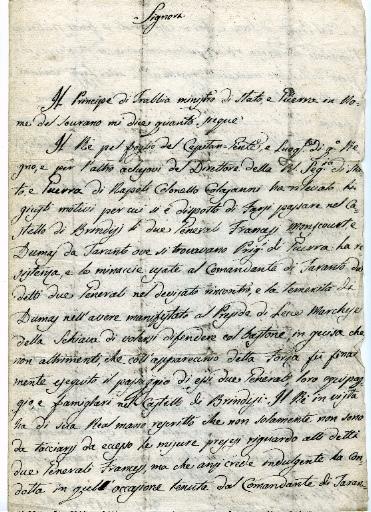 Signore
Il Principe di Trabbia ministro di Stato, e Guerra in No-
me del Sovrano mi dice quanto segue
Il Rè pel foglio del Capitan Gente, e Luogte di q. Re
gno, e per l'altro acclusovi del Direttore della Rl Segria di Sta
to, e Guerra di Napoli Colonello Colajanni ha rilevato li
giusti motivi per cui si è disposto di farsi passare nel Ca-
stello di Brindisi li due Generali Francesi Monscourt, e
Dumas da Taranto ove si trovavano Prig. di Guerra, la re
sistenza, e le minaccie usate al Comandante di Taranto da
detti due Generali nel devisato rincontro, e la temerità di
Dumas nell'avere manifestato al Preside di Lecce Marchese
della Schiava di volersi difendere col bastone, in guisa che
non altrimenti, che coll'apparecchio della Forza fù final
mente eseguito il passaggio di essi due Generali, loro equipag
gio, e famigliari nel Castello di Brindisi. Il Rè in vista
di Sua Real mano rescritto che non solamente non sono
da tacciarsi da eccesso le misure prese riguardo alli detti
due Generali Francesi, ma che anzi crede indulgente la con
dotta in quell'occasione tenuta dal Comandante di Taran-